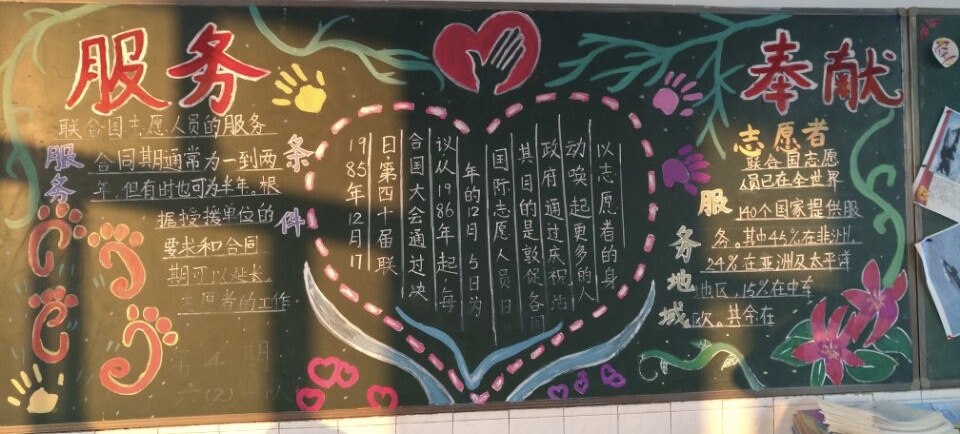 服务
奉献
服务
条件
联合国志愿人员的服务
合同期通常为一到两
年，但有时也可为半年，根
据接援单位的
要求和合同
期可以延长。
志愿者的工作
第4期
六(2)
19
85年12月17
日，第四十届联
合国大会通过决
议从1986年起，每
年的12月5日为
国际志愿人员日
其目的是敦促各国
政府通过庆祝活
动唤起更多的人
以志愿者的身
志愿者
服务地域
联合国志愿
人员已在全世界
140个国家提供服
务。其中45%在非洲，
24%在亚洲及太平洋
地区，15%在中东
欧。其余在